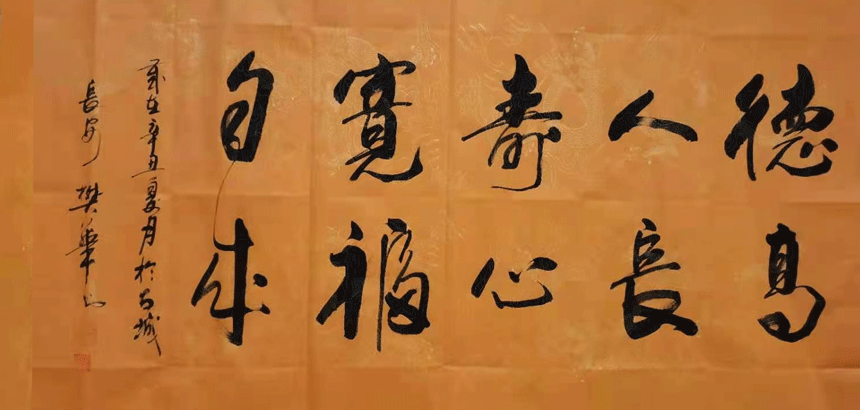 德高
人長
壽心
寬福
自來
歲在辛丑夏月於古城
長安樊華山